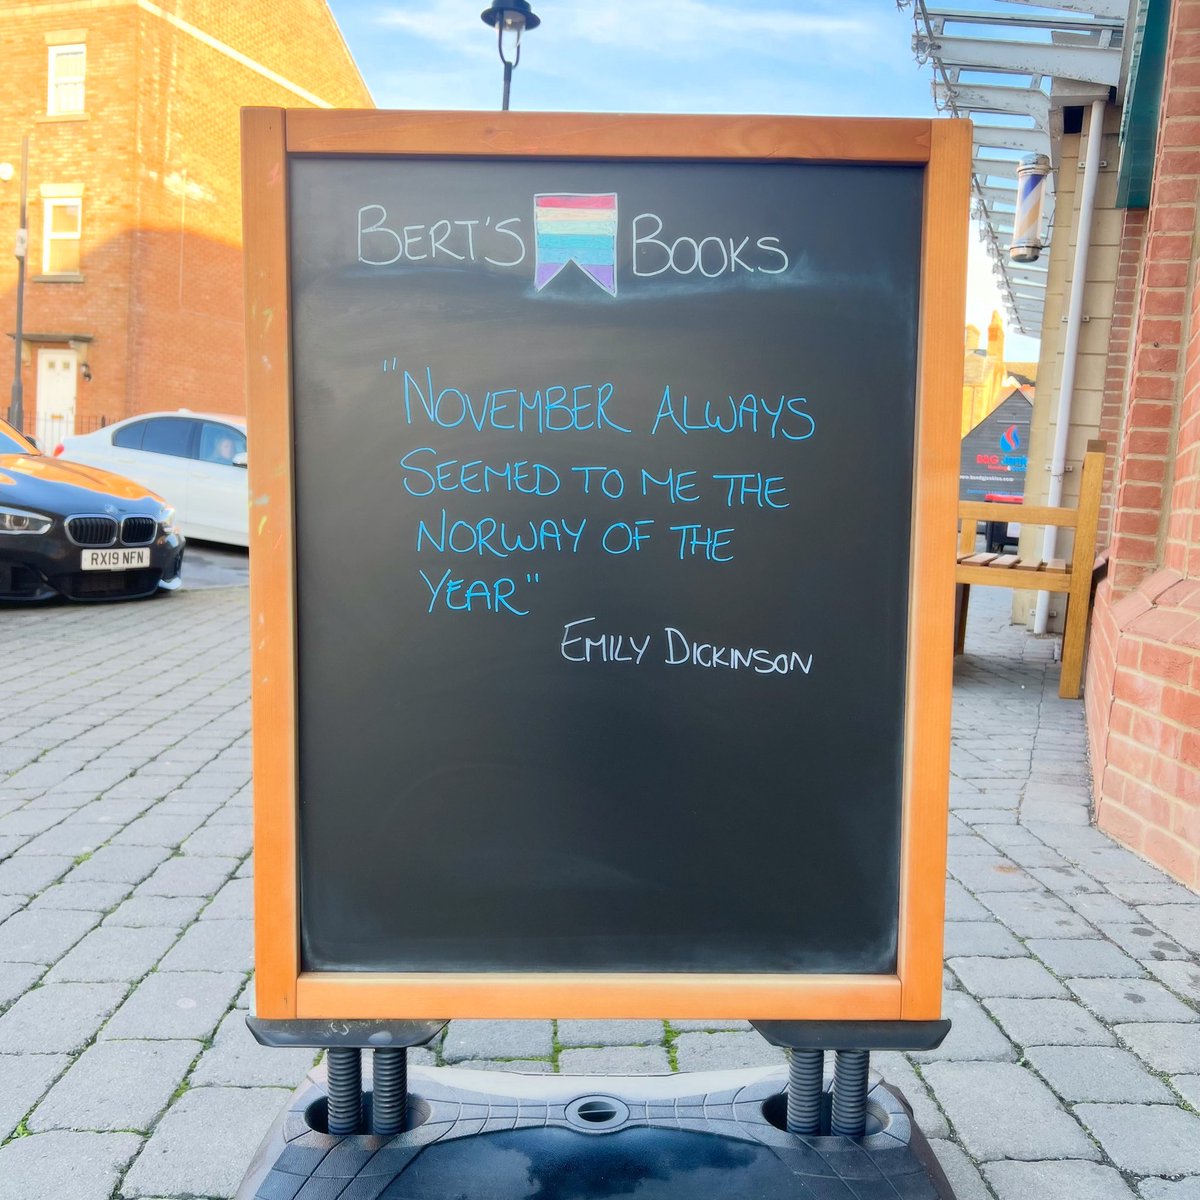 BERT'S BOOKS
"NOVEMBER ALWAYS
SEEMED TO ME THE
NORWAY OF THE
YEAR"
EMILY DICKINSON
RX19 NFN